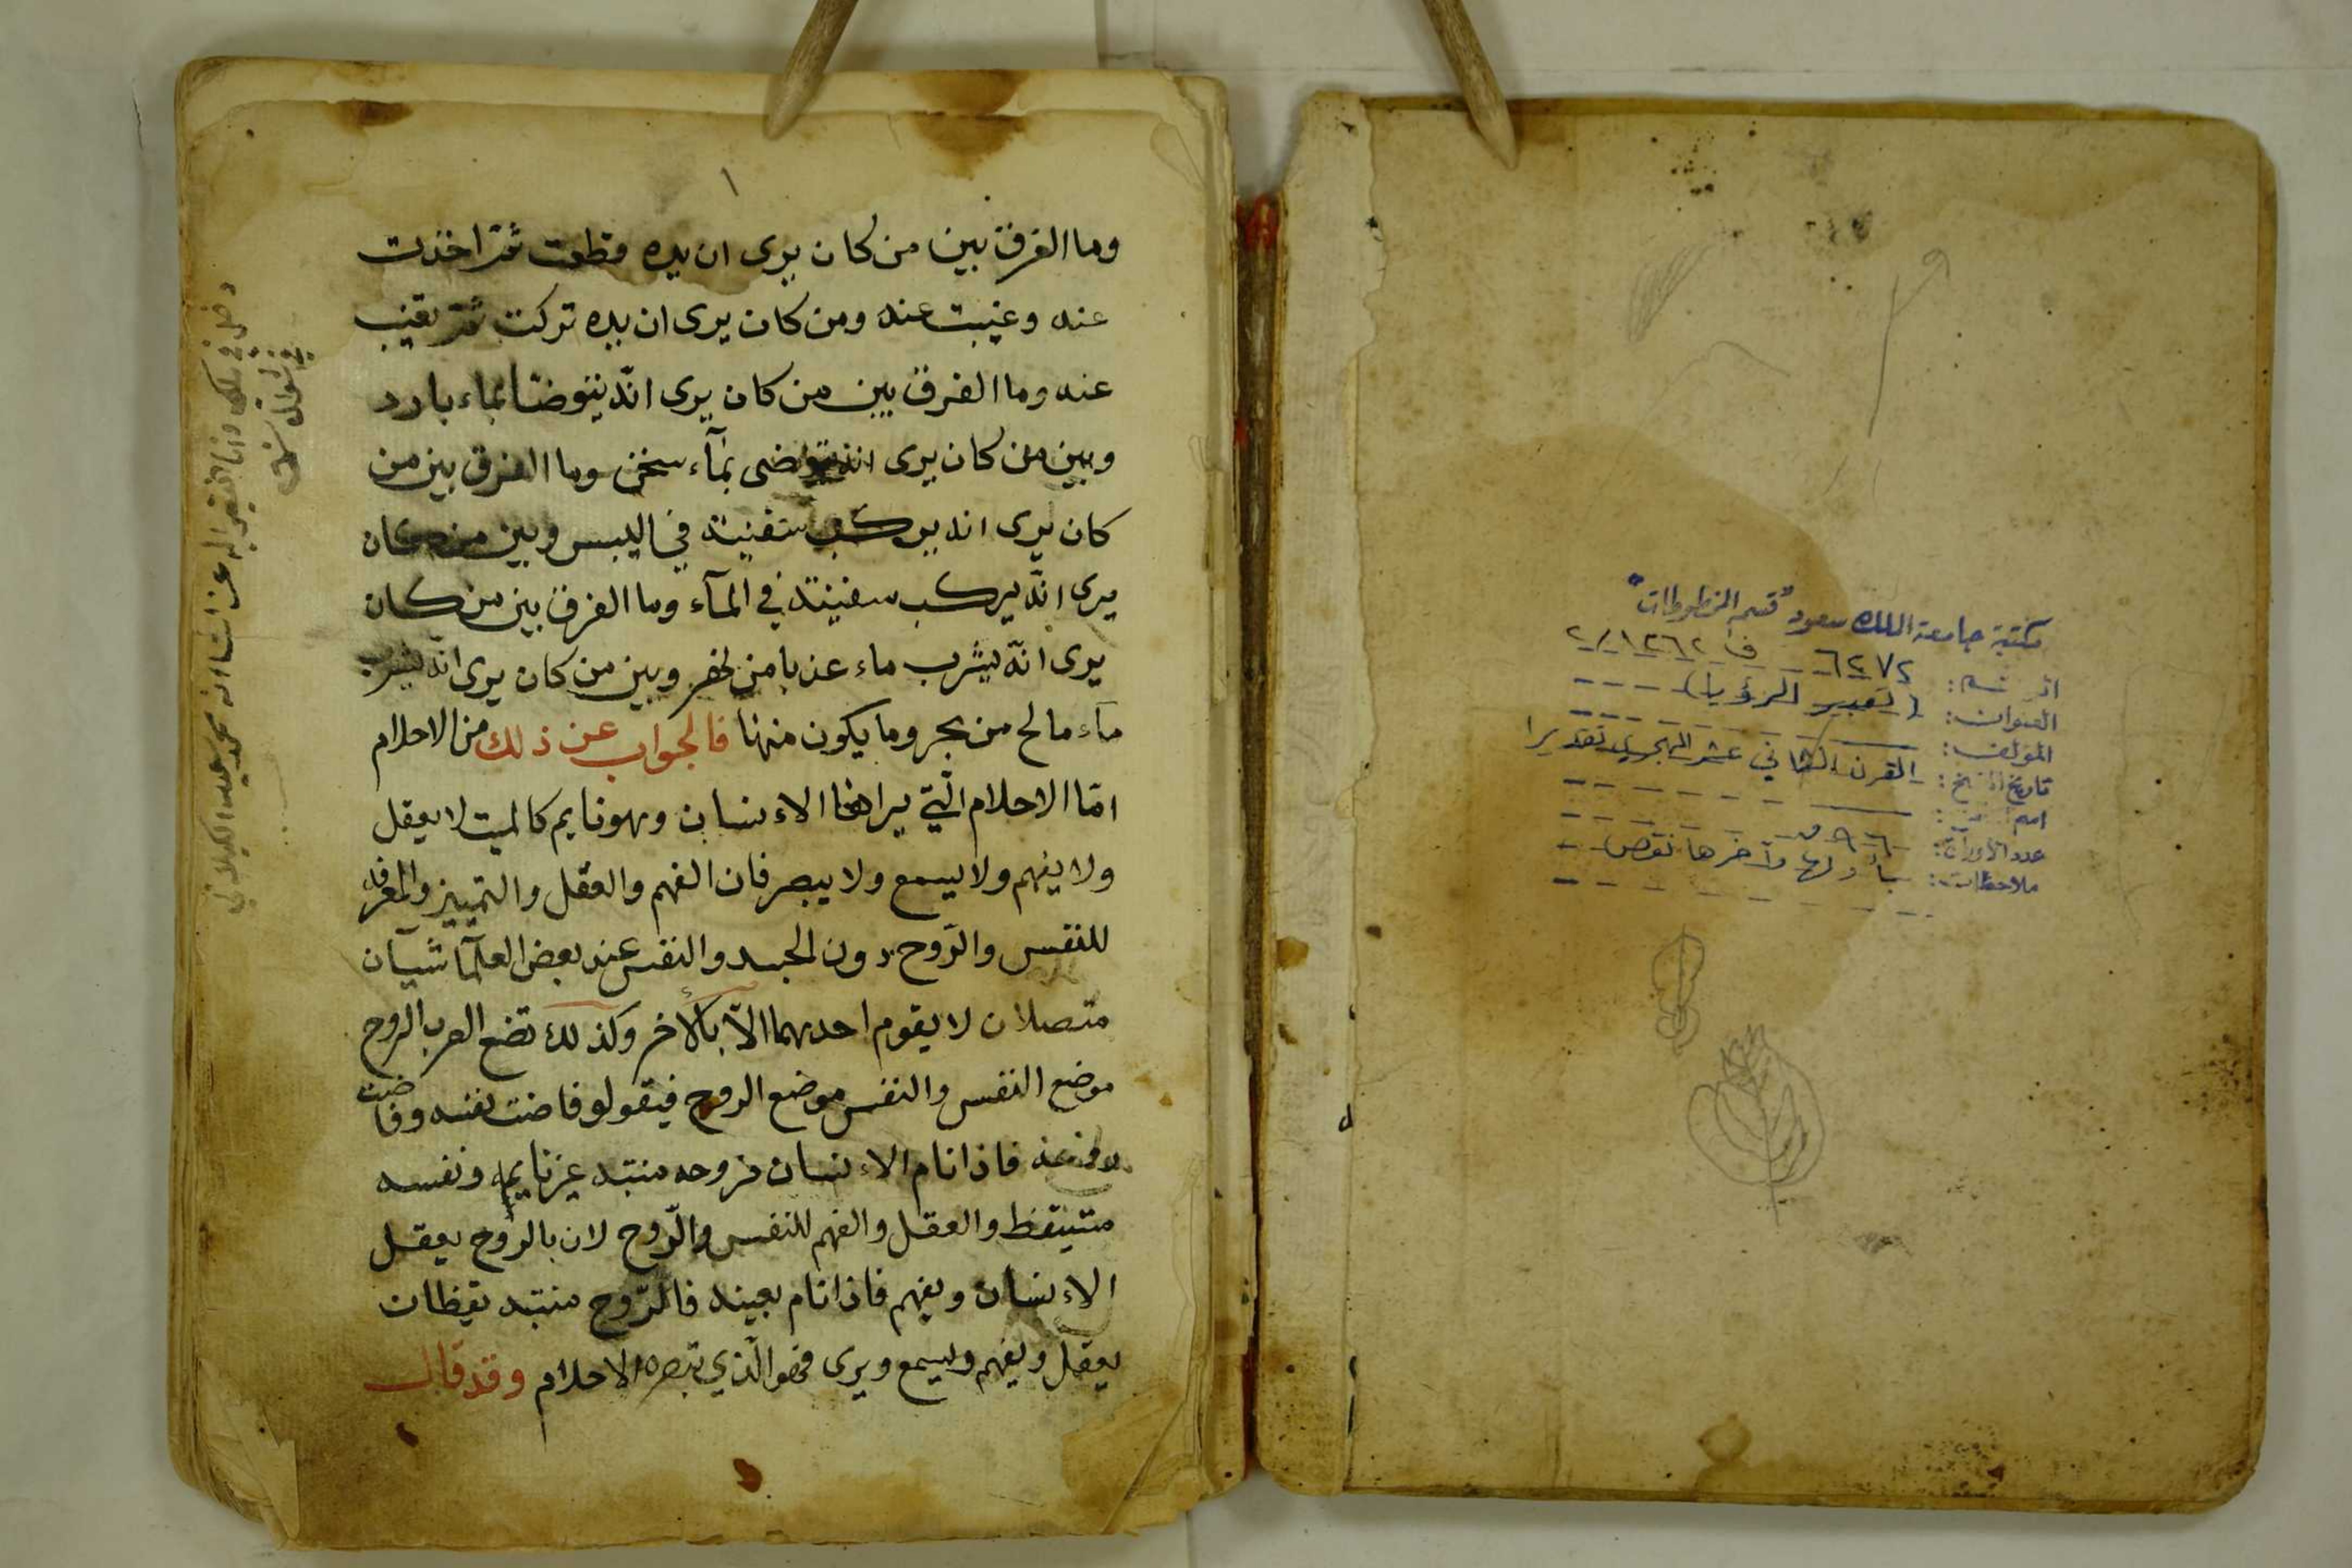 مكتبة جامعة الملك سعود "قسم المخطوطات"
الرقم: ٦٢٧٢ ف ١٢٦٢/٢
العنوان: (تعبير الرؤيا)
المؤلف:
تاريخ النسخ: القرن الثاني عشر الهجري تقديرا
اسم الناسخ:
عدد الأوراق: ٩٦ ق
ملاحظات: بأولها وآخرها نقص
١
وما الفرق بين من كان يرى ان يده قطعت ثمّ اخذت
عنه وغيبت عنه ومن كان يرى ان يده تركت ثمّ
عنه وما الفرق بين من كان يرى انّه يتوضأ بماء بارد
وبين من كان يرى انه يتوضى بمآء سخن وما الفرق بين من
كان يرى انه يركب سفينة في اليبس وبين من كان
يرى انّه يركب سفينة في المآء وما الفرق بين من كان
يرى انّه يشرب ماء عذبا من نهر وبين من كان يرى انّه يشرب
مآء مالح من بحر وما يكون منها فالجواب عن ذلك من الاحلام
امّا الاحلام الّتي يراها الاءنسان وهو نايم كالميت لا يعقل
ولا يفهم ولا يسمع ولا يبصر فان الفهم والعقل والتمييز والمعرفه
للنفس والرّوح دون الجسد والنفس عند بعض العلمآ شيآن
متصلان لا يقوم احدهما الاّ بالأخر وكذلك تضع العرب الروح
موضع النفس والنفس موضع الروح فيقولو فاضت نفسه وفاضت
فاذا نام الاءنسان فروحه منتبه غير نايمه ونفسه
متيقظ والعقل والفهم للنفس والرّوح لان بالروح يعقل
الاءنسان ويفهم فاذا نام بعينه فالرّوح منتبه يقظان
يعقل ويفهم ويسمع ويرى فهو الّذي تبصره الاحلام وقد قال
دخل في ملكي وانا الفقير اليه عز شانه محمد الكيلاني
في شوال سنة